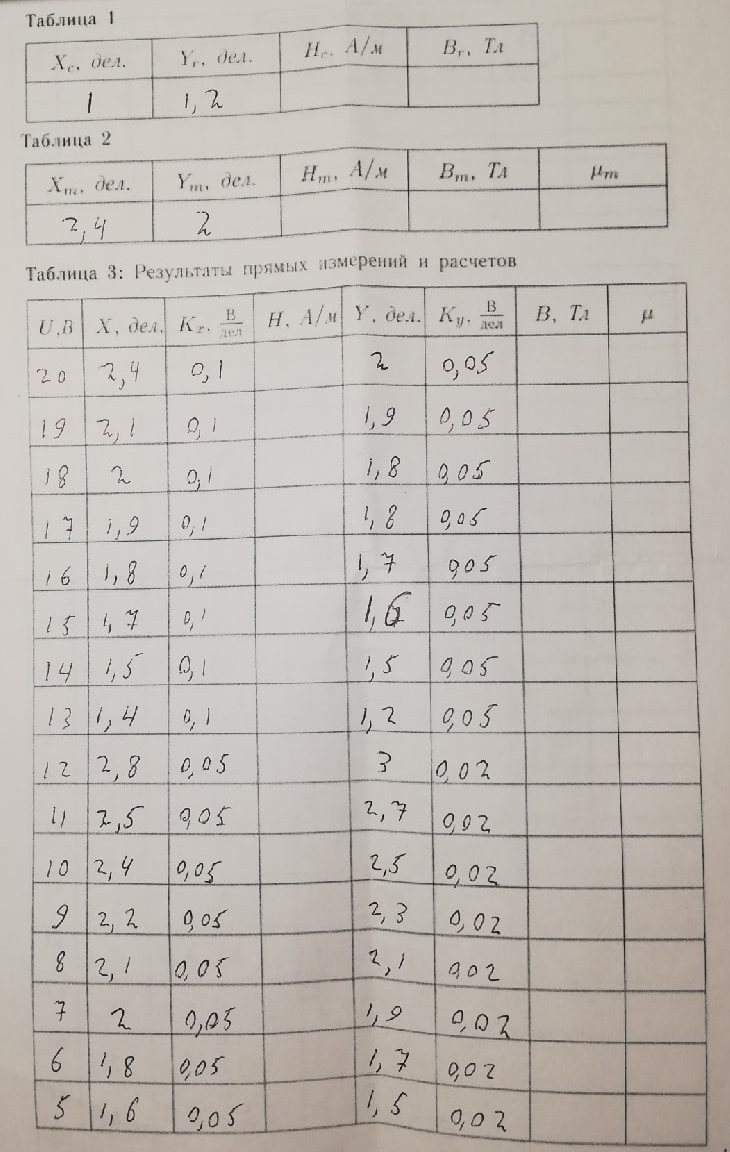 Таблица 1
X_c, дел. Y_r, дел. H_c, А/м B_r, Тл
1 1,2
Таблица 2
X_m, дел. Y_m, дел. H_m, А/м B_m, Тл μ_m
2,4 2
Таблица 3: Результаты прямых измерений и расчетов
U,В X, дел. K_x, В/дел H, А/м Y, дел. K_y, В/дел B, Тл μ
20 2,4 0,1 2 0,05
19 2,1 0,1 1,9 0,05
18 2 0,1 1,8 0,05
17 1,9 0,1 1,8 0,05
16 1,8 0,1 1,7 0,05
15 1,7 0,1 1,6 0,05
14 1,5 0,1 1,5 0,05
13 1,4 0,1 1,2 0,05
12 2,8 0,05 3 0,02
11 2,5 0,05 2,7 0,02
10 2,4 0,05 2,5 0,02
9 2,2 0,05 2,3 0,02
8 2,1 0,05 2,1 0,02
7 2 0,05 1,9 0,02
6 1,8 0,05 1,7 0,02
5 1,6 0,05 1,5 0,02